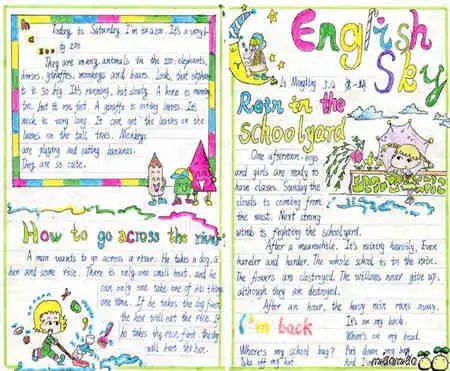 In a zoo
Today is Saturday. I'm in a zoo. It's a very
big zoo
They are many animals in the zoo: elephants,
horses, giraffes, monkeys and bears. Look, that elephant
It is so big. It's running, but slowly. A horse is running
too, but it runs fast. A giraffe is eating leaves. It's
neck is very long. It can eat the leaves on the
leaves on the tall trees. Monkeys
are playing and eating bananas.
They are so cute.
How to go across the river
A man wants to go across a river. He takes a dog, a
hen and some rice. There is only one small boat, and he
can only one take one of his things
one time. If he takes the dog first,
the hen will eat the rice. If
he takes the rice first, the dog
will hurt the hen.
English
Sky
Rain in the
schoolyard
One afternoon, boys
and girls are ready to
have classes. Suddenly the
clouds is coming from
the west. Next strong
wind is fighting the schoolyard.
After a meanwhile. It's raining heavily, Even
harder and harder. The whole school is in the rain.
The flowers are destroyed. The willows never give up,
although they are destroyed.
After an hour, the heavy rain runs away.
I'm back
Where's my school bag?
Take off my hat.
It's on my back.
Where's on my head.
Put down my bag
And I